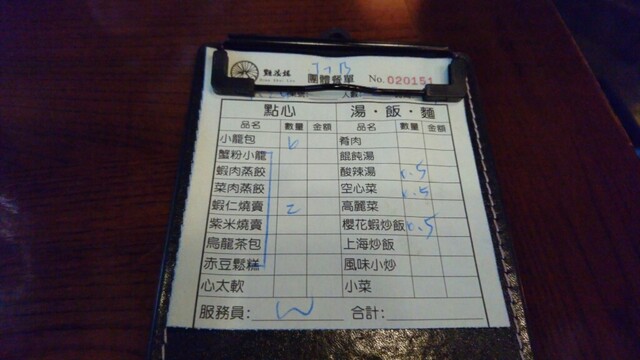 點水樓
團體餐單 No. 020151
點心 湯・飯・麵
品名 數量 金額 品名 數量 金額
小籠包 6 肴肉
蟹粉小籠 餛飩湯
蝦肉蒸餃 酸辣湯 0.5
菜肉蒸餃 空心菜 0.5
蝦仁燒賣 2 高麗菜
紫米燒賣 櫻花蝦炒飯 0.5
烏龍茶包 上海炒飯
赤豆鬆糕 風味小炒
心太軟 小菜
服務員: 合計: